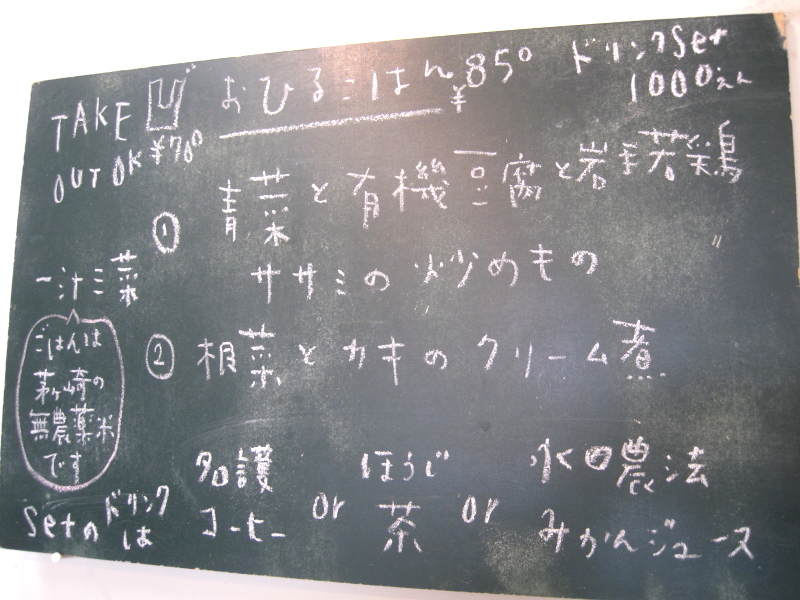 TAKE OUT OK ¥700
おひるごはん ¥850
ドリンクSet 1000えん
① 青菜と有機豆腐と岩手若菜鶏
ササミの炒めもの
一汁三菜
② 根菜とカキのクリーム煮
ごはんは
茅ヶ崎の
無農薬米
です
Setのドリンクは
コーヒー or ほうじ茶 or
農法
みかんジュース